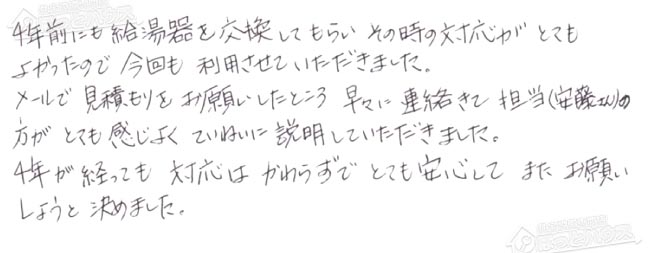 4年前にも給湯器を交換してもらい その時の対応が とても
よかったので 今回も 利用させていただきました。
メールで 見積もりを お願いしたところ 早々に 連絡きて 担当(安藤さん)の
方が とても 感じよく ていねいに 説明していただきました。
4年が 経っても 対応は かわらずで とても 安心して また お願い
しようと 決めました。